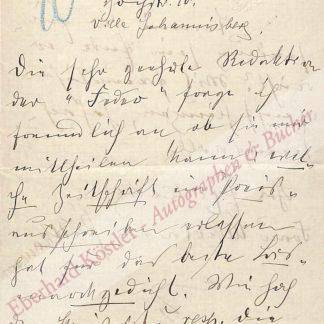 Hochstr. 10.
Villa Johannisberg.
Die sehr geehrte Redaktion
der "Feder" frage ich
freundlich an ob sie mir
mittheilen kann, wel-
che Zeitschrift ein Preis-
ausschreiben erlassen
hat für das beste
gedicht. Wie hoch
resp. die
Eberhard Köstler Autographen & Bücher